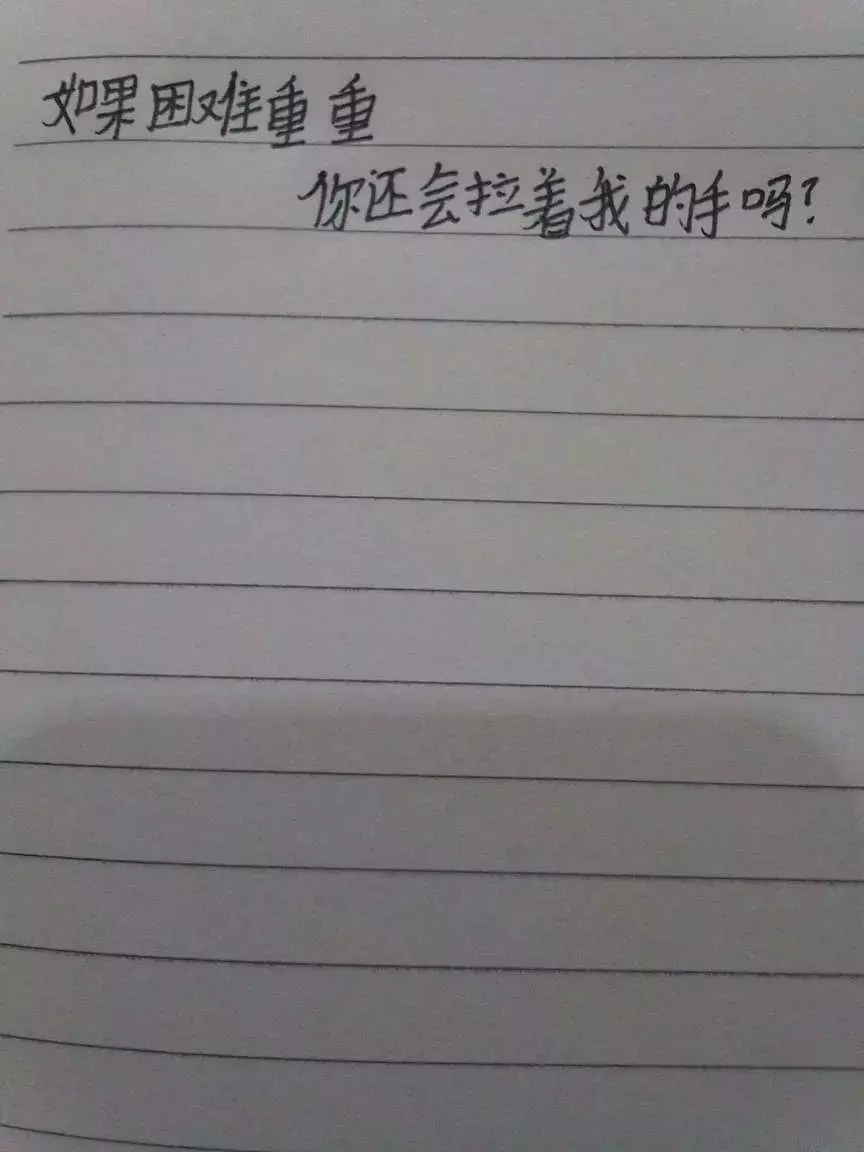 如果困难重重
你还会拉着我的手吗?